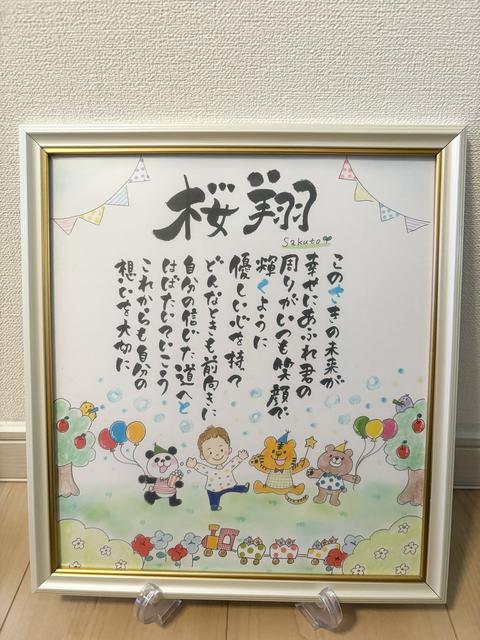 桜翔
Sakuto
このさきの未来が
幸せにあふれ君の
周りがいつも笑顔で
輝くように
優しい心を持って
どんなときも前向きに
自分の信じた道へと
はばたいていこう
これからも自分の
想いを大切に